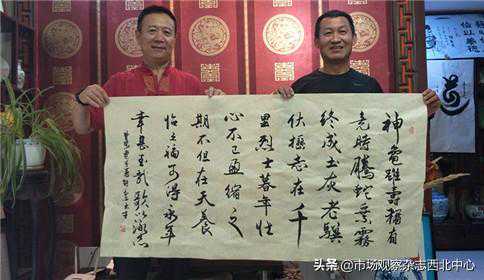 神龜雖壽猶有
竟時騰蛇乘霧
終成土灰老驥
伏櫪志在千
里烈士暮年壯
心不已盈縮之
期不但在天養
怡之福可得永年
幸甚至哉歌以詠志
头条 @市场观察杂志西北中心